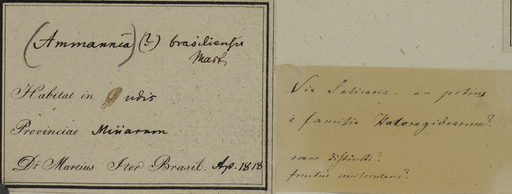 (Ammannia) (?) brasiliensis
Mart.
Habitat in udis
Provinciae Minarum
Dr Martius Iter Brasil. Ap. 1818
Vix Salicaria. an potius
e familia Haloragidearum?
distincti?
fructus unilocularis?